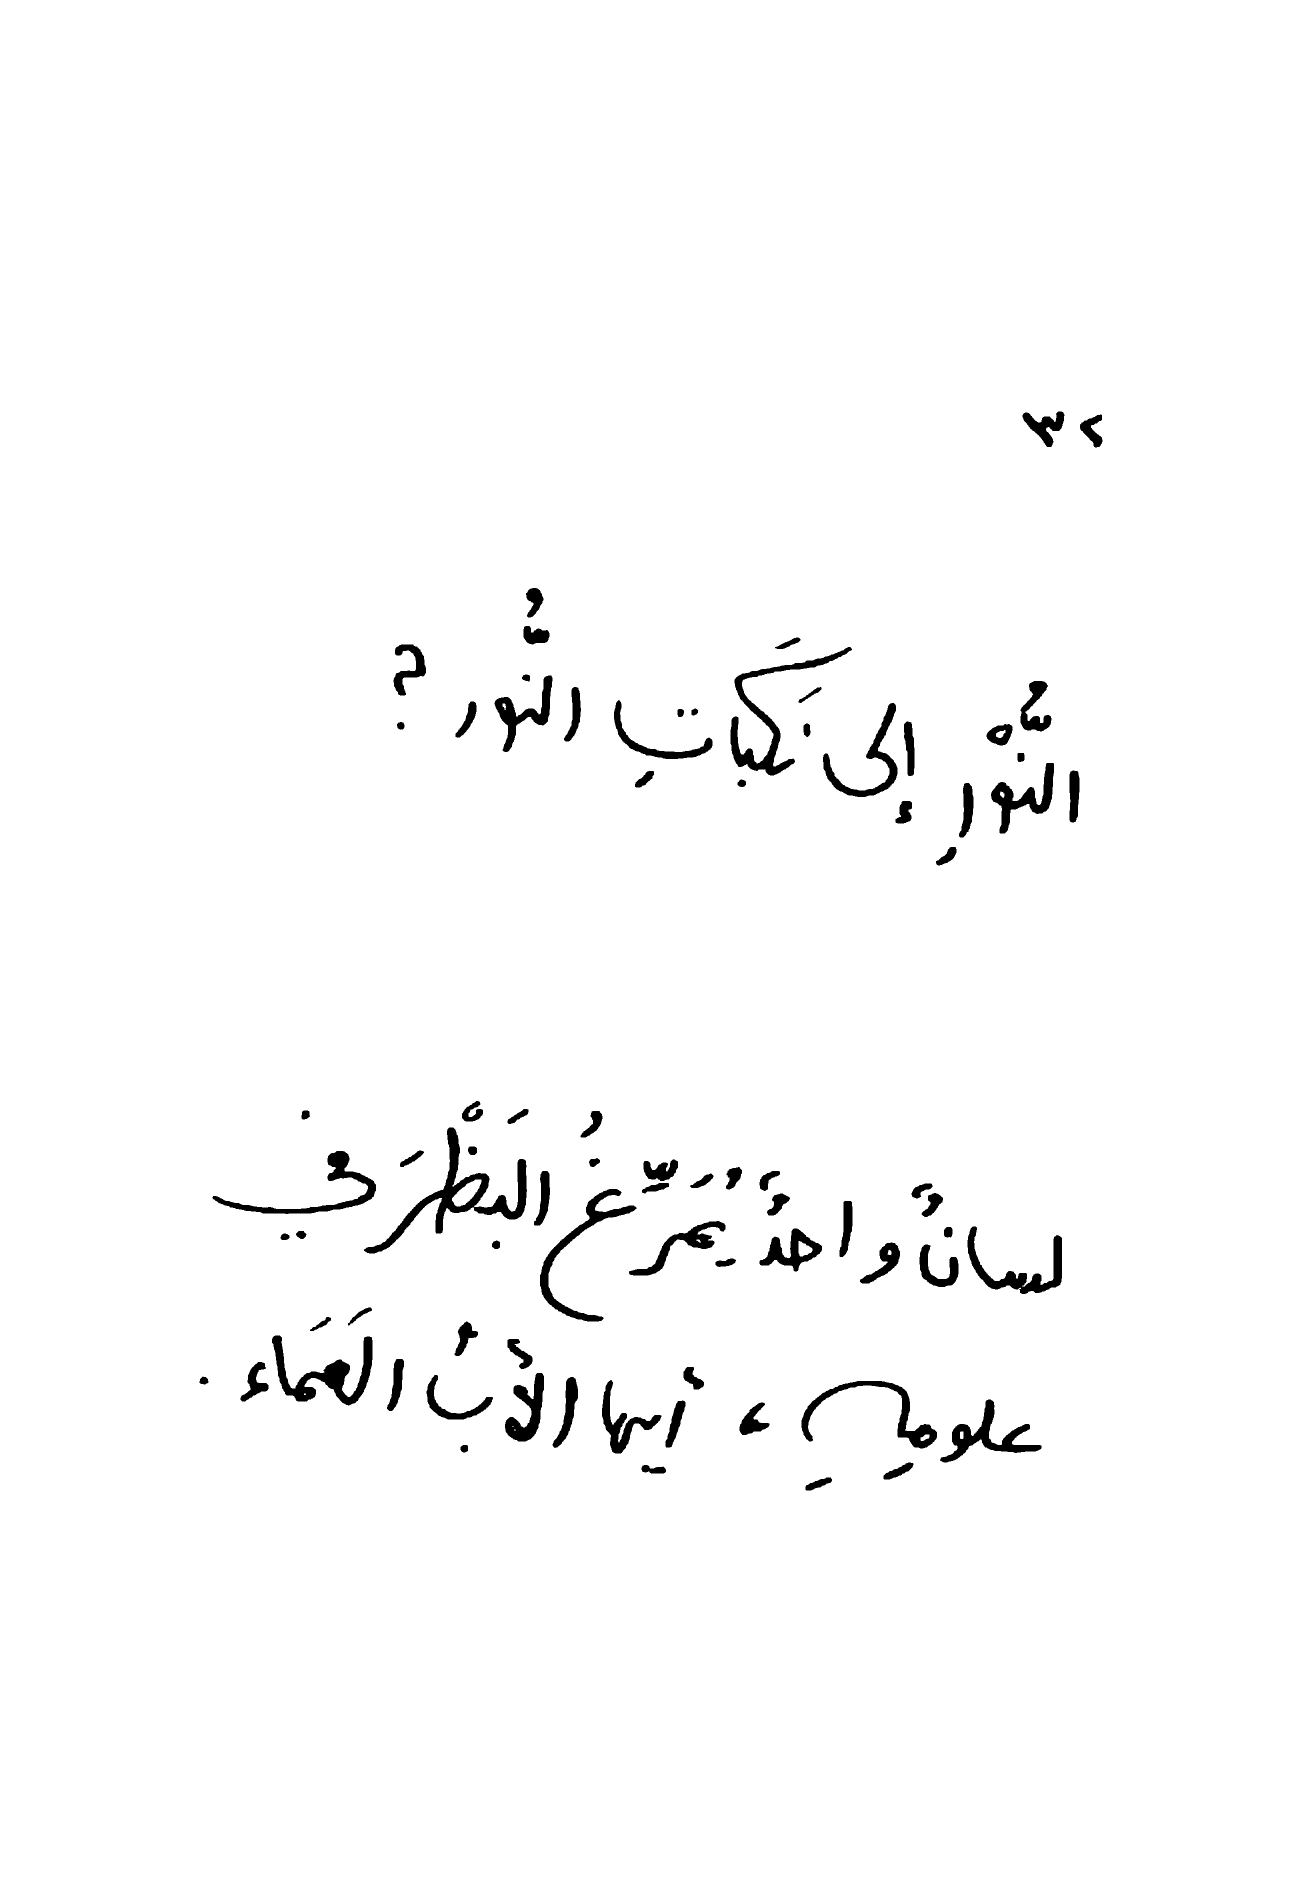 ٣٢
النُّوْرِ إلى نَكَباتِ النُّور ؟
لسانٌ واحدٌ يُمَرِّغُ البَظْرَ في
علومِهِ ، أيها الأبُ العَمَاء .